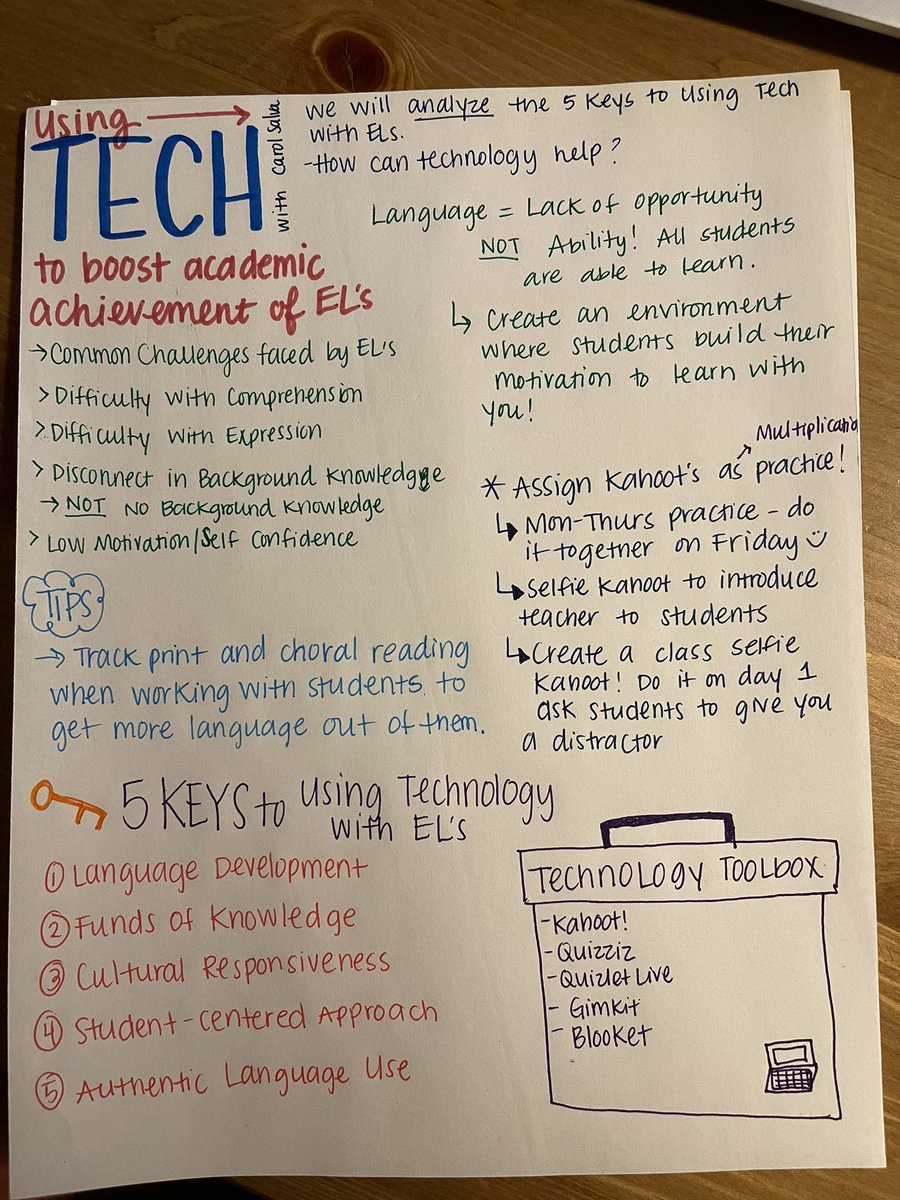 Using →
TECH
with Carol Salva
to boost academic
achievement of EL's
we will analyze the 5 Keys to Using Tech
with ELs.
-How can technology help?
Language = Lack of opportunity
NOT Ability! All students
are able to learn.
↳ Create an environment
where students build their
motivation to learn with
you!
→ Common Challenges faced by EL's
> Difficulty with Comprehension
> Difficulty with Expression
> Disconnect in Background Knowledge
→ NOT No Background Knowledge
> Low Motivation/Self Confidence
Multiplication
* Assign Kahoot's as practice!
↳ Mon-Thurs practice - do
it together on Friday
↳ Selfie Kahoot to introduce
teacher to students
↳ Create a class selfie
Kahoot! Do it on day 1
ask students to give you
a distractor
TIPS
→ Track print and choral reading
when working with students to
get more language out of them.
5 KEYS to Using Technology
with EL's
① Language Development
② Funds of Knowledge
③ Cultural Responsiveness
④ Student-Centered Approach
⑤ Authentic Language Use
Technology Toolbox
-Kahoot!
-Quizziz
-Quizlet Live
- Gimkit
- Blooket